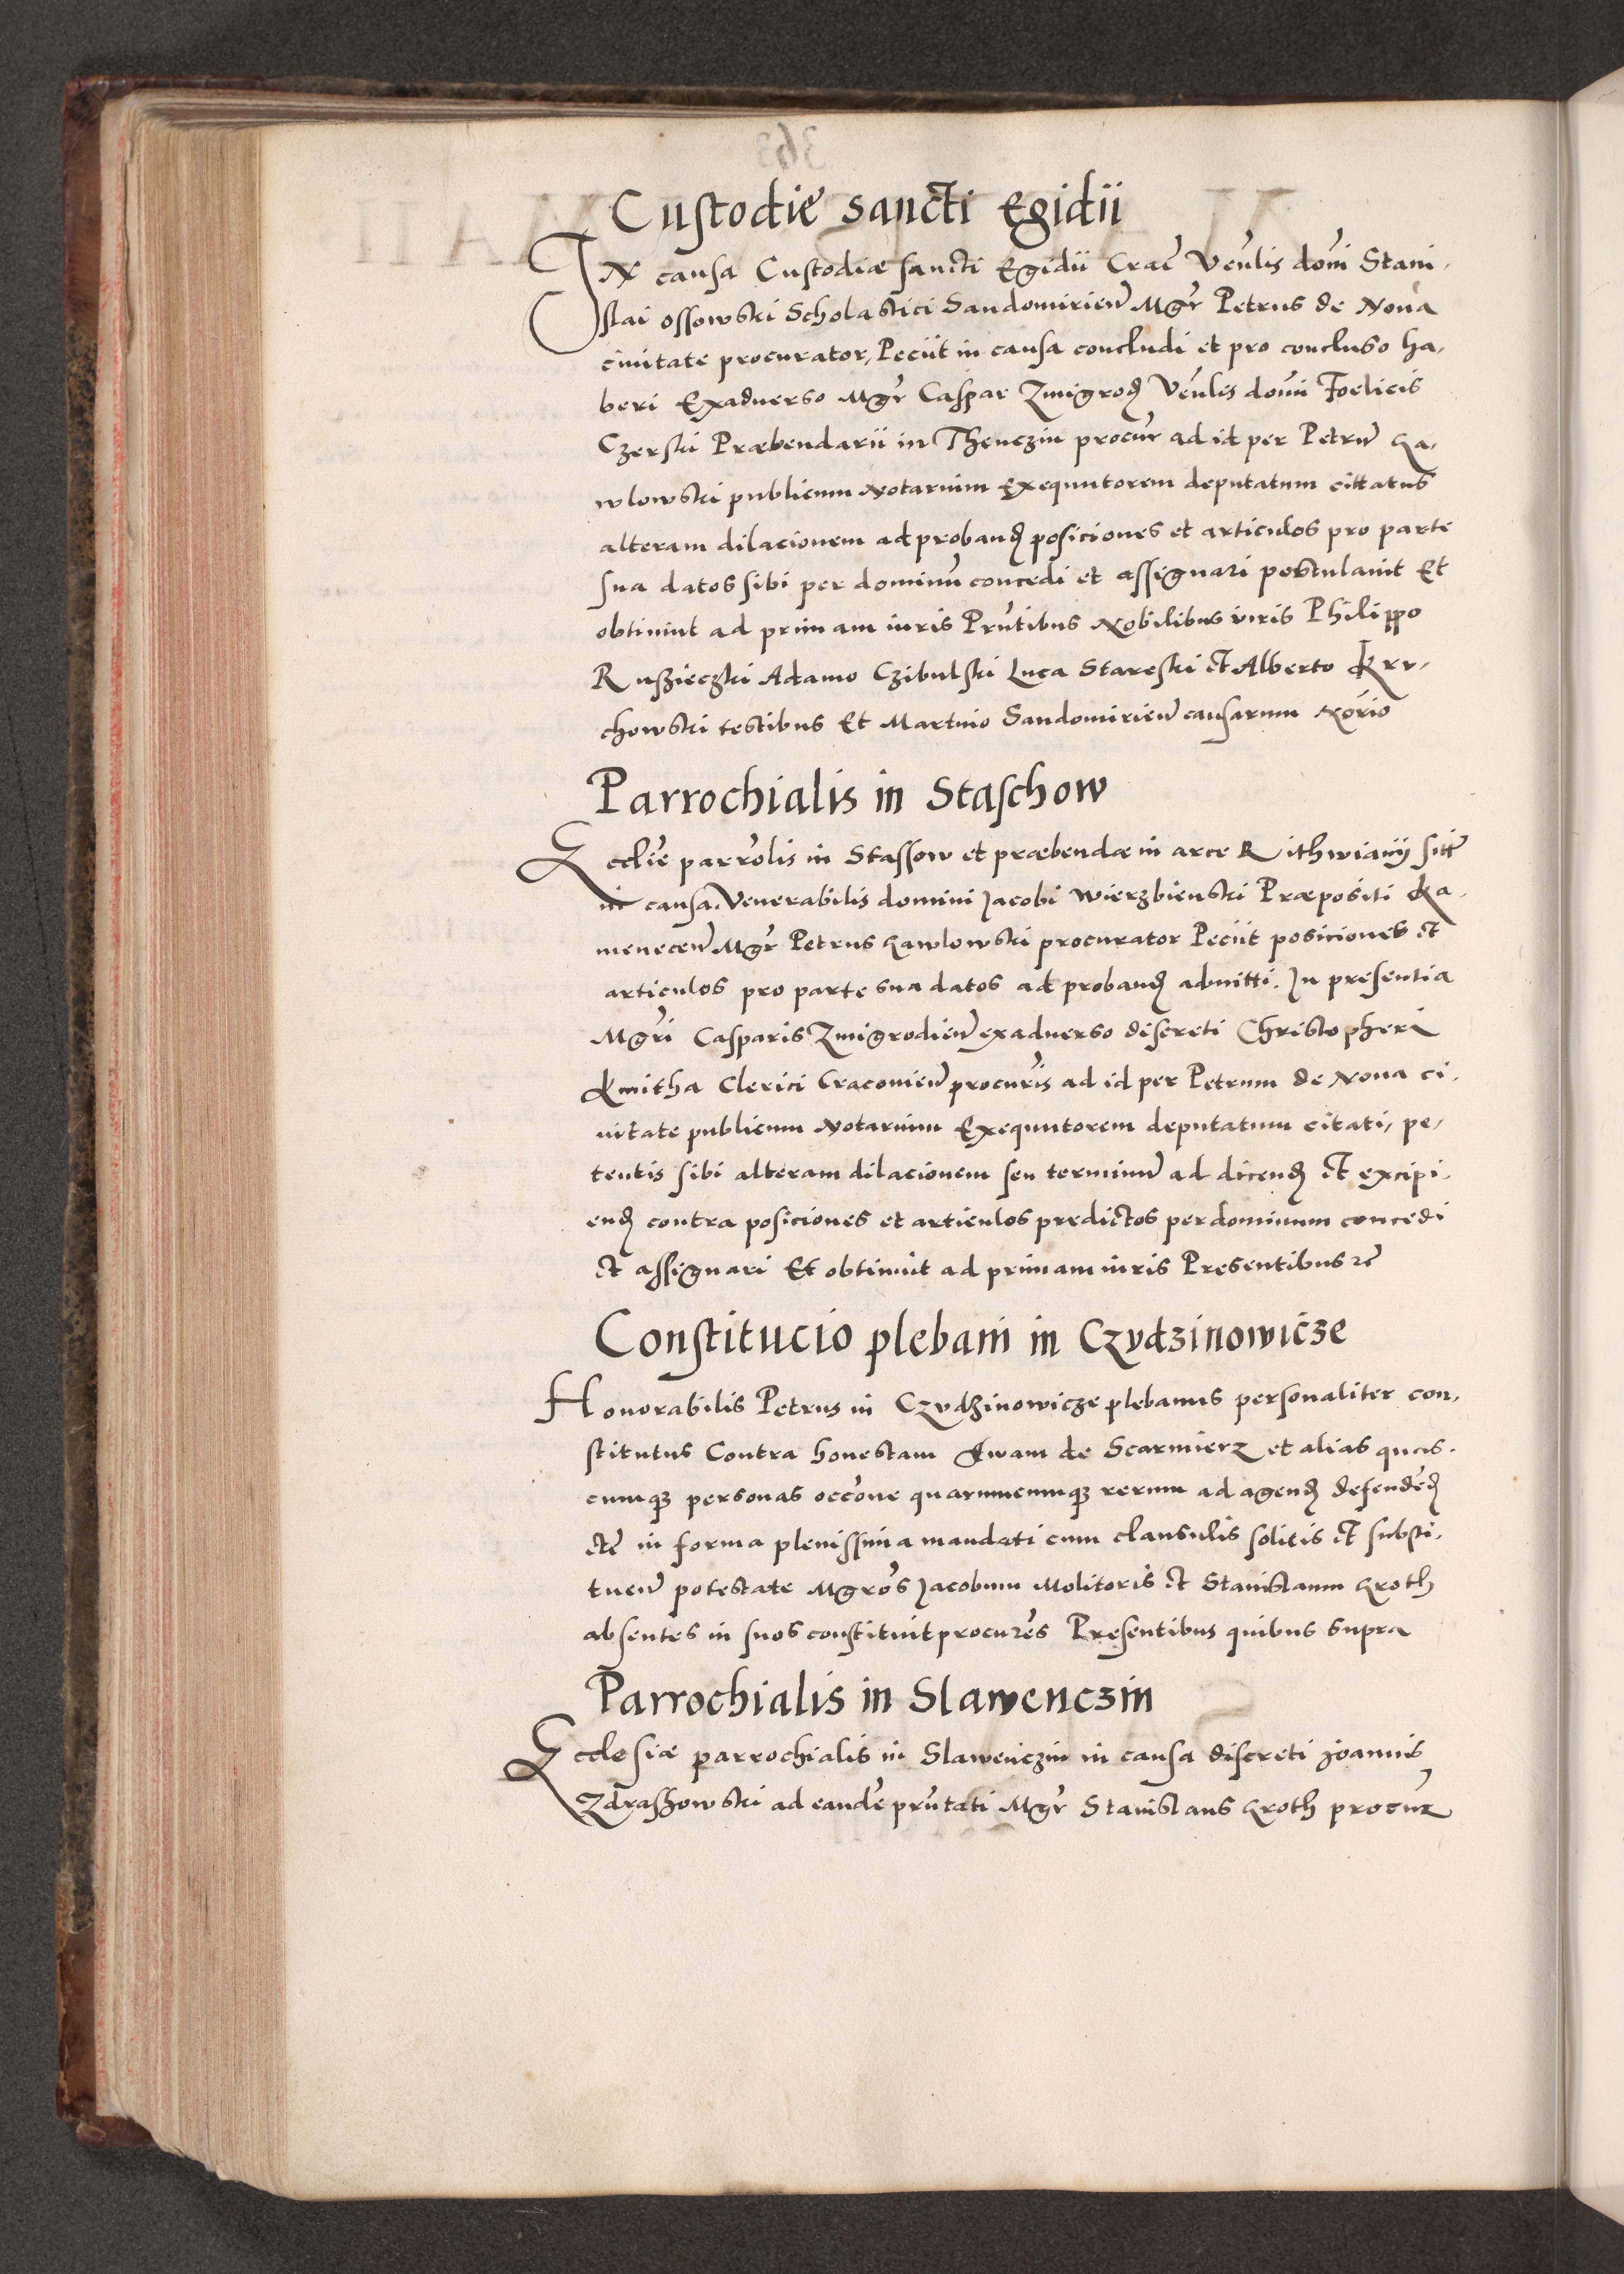 Custodie sancti Egidii
IN causa Custodiæ sancti Egidii Crac̄ Ven̄lis dom̄i Stani-
slai Ossowski Scholastici Sandomirien̄ Mgr̄ Petrus de Noua
ciuitate procurator, Peciit in causa concludi et pro concluso ha-
beri Exaduerso Mgr̄ Caspar Zmigrod̄ Ven̄lis dom̄i Foelicis
Czerski Præbendarii in Thenczin procur̄ ad id per Petrum̄ Ga-
wlowski publicum Notarium Exequutorem deputatum cittatus
alteram dilacionem ad proband̄ posiciones et articulos pro parte
sua datos sibi per dominū concedi et assignari postulauit Et
obtinuit ad primam iuris Prn̄tibus Nobilibus viris Philippo
Ruszieczki Adamo Czibulski Luca Stareski et Alberto Krv-
chowski testibus Et Martino Sandomirien̄ causarum No͞rio
Parrochialis in Staschow
Eccl̄ie parro͞lis in Stassow et præbendæ in arce Rithwiany sitt̄
in causa Venerabilis domini Jacobi Wierzbienski Præpositi Ka-
menecen̄ Mgr̄ Petrus Gawlowski procurator Peciit posiciones et
articulos pro parte sua datos ad proband̄ admitti. In presentia
Mgr̄i Casparis Zmigrodien̄ exaduerso discreti Christopheri
Kmitha Clerici Cracouien̄ procur̄is ad id per Petrum de Noua ci-
uitate publicum Notarium Exequutorem deputatum citati, pe-
tentis sibi alteram dilacionem seu terminum̄ ad dicend̄ et excipi-
end̄ contra posiciones et articulos predictos per dominum concedi
et assignari Et obtinuit ad primam iuris Presentibus zc̄
Constitucio plebani in Czvdzinowicze
Honorabilis Petrus in Czvdzinowicze plebanus personaliter con-
stitutus Contra honestam Ewam de Scarmierz et alias quas-
cumqz personas occ͞one quarumcumqz rerum ad agend̄ defendēd̄
etc̄ in forma plenissima mandati cum clausulis solitis et substi-
tuen̄ potestate Mgro͞s Jacobum Molitoris et Stanislaum Groth
absentes in suos constituit procur̄es Presentibus quibus supra
Parrochialis in Slawenczin
Ecclesiæ parrochialis in Slawenczin in causa discreti Joannis
Zdraszowski ad eandē prn̄tati Mgr̄ Stanislaus Groth procur̄